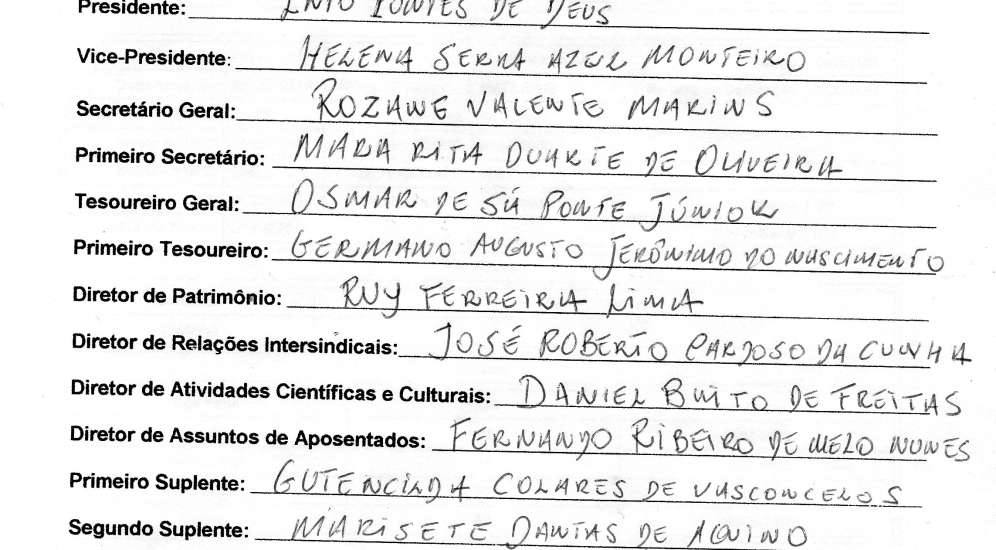 Presidente: ENIO PONTES DE DEUS
Vice-Presidente: HELENA SERRA AZUL MONTEIRO
Secretário Geral: ROZANE VALENTE MARINS
Primeiro Secretário: MARA RITA DUARTE DE OLIVEIRA
Tesoureiro Geral: OSMAR DE SÁ PONTE JÚNIOR
Primeiro Tesoureiro: GERMANO AUGUSTO JERÔNIMO DO NASCIMENTO
Diretor de Patrimônio: RUY FERREIRA LIMA
Diretor de Relações Intersindicais: JOSÉ ROBERTO CARDOSO DA CUNHA
Diretor de Atividades Científicas e Culturais: DANIEL BRITO DE FREITAS
Diretor de Assuntos de Aposentados: FERNANDO RIBEIRO DE MELO NUNES
Primeiro Suplente: COLARES DE VASCONCELOS
Segundo Suplente: MARISETE DANTAS DE AQUINO